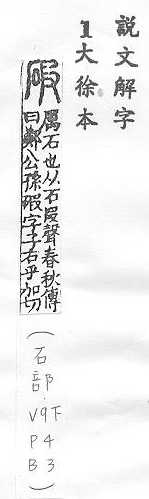 説文解字
1大徐本
碬
厲石也从石叚聲春秋傳
曰鄭公孫碬字子石乎加切
(石部.V9下P4B3)